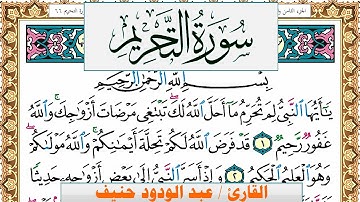 سورة التحريم ٦٦
الجزء الثامن
سُورَةُ التَّحْرِيمِ
بِسْمِ اللَّهِ الرَّحْمَٰنِ الرَّحِيمِ
يَا أَيُّهَا النَّبِيُّ لِمَ تُحَرِّمُ مَا أَحَلَّ اللَّهُ لَكَ تَبْتَغِي مَرْضَاتَ أَزْوَاجِكَ وَاللَّهُ
غَفُورٌ رَّحِيمٌ ١ قَدْ فَرَضَ اللَّهُ لَكُمْ تَحِلَّةَ أَيْمَانِكُمْ وَاللَّهُ مَوْلَاكُمْ
وَهُوَ الْعَلِيمُ الْحَكِيمُ ٢ وَإِذْ أَسَرَّ النَّبِيُّ إِلَىٰ بَعْضِ أَزْوَاجِهِ حَدِيثًا
القارئ / عبد الودود حنيف